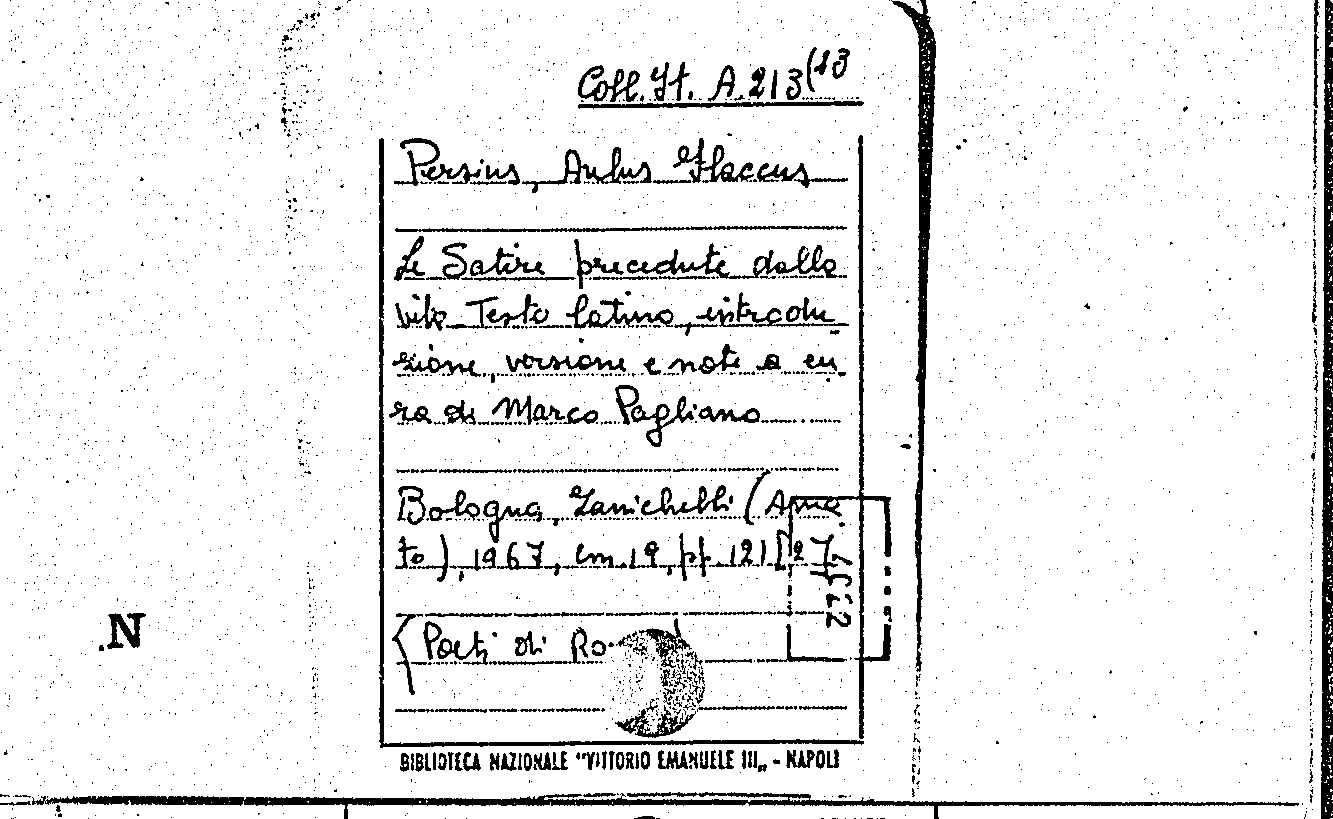 Coll. It. A. 213(13
Persius, Aulus Flaccus
Le Satire precedute dalla
vita. Testo latino, introdu
zione, versione e note a cu
ra di Marco Pagliano
Bologna, Zanichelli (Arma
to), 1967, cm. 19, pp. 121
(Poeti di Ro
.N
BIBLIOTECA NAZIONALE "VITTORIO EMANUELE III„ - NAPOLI